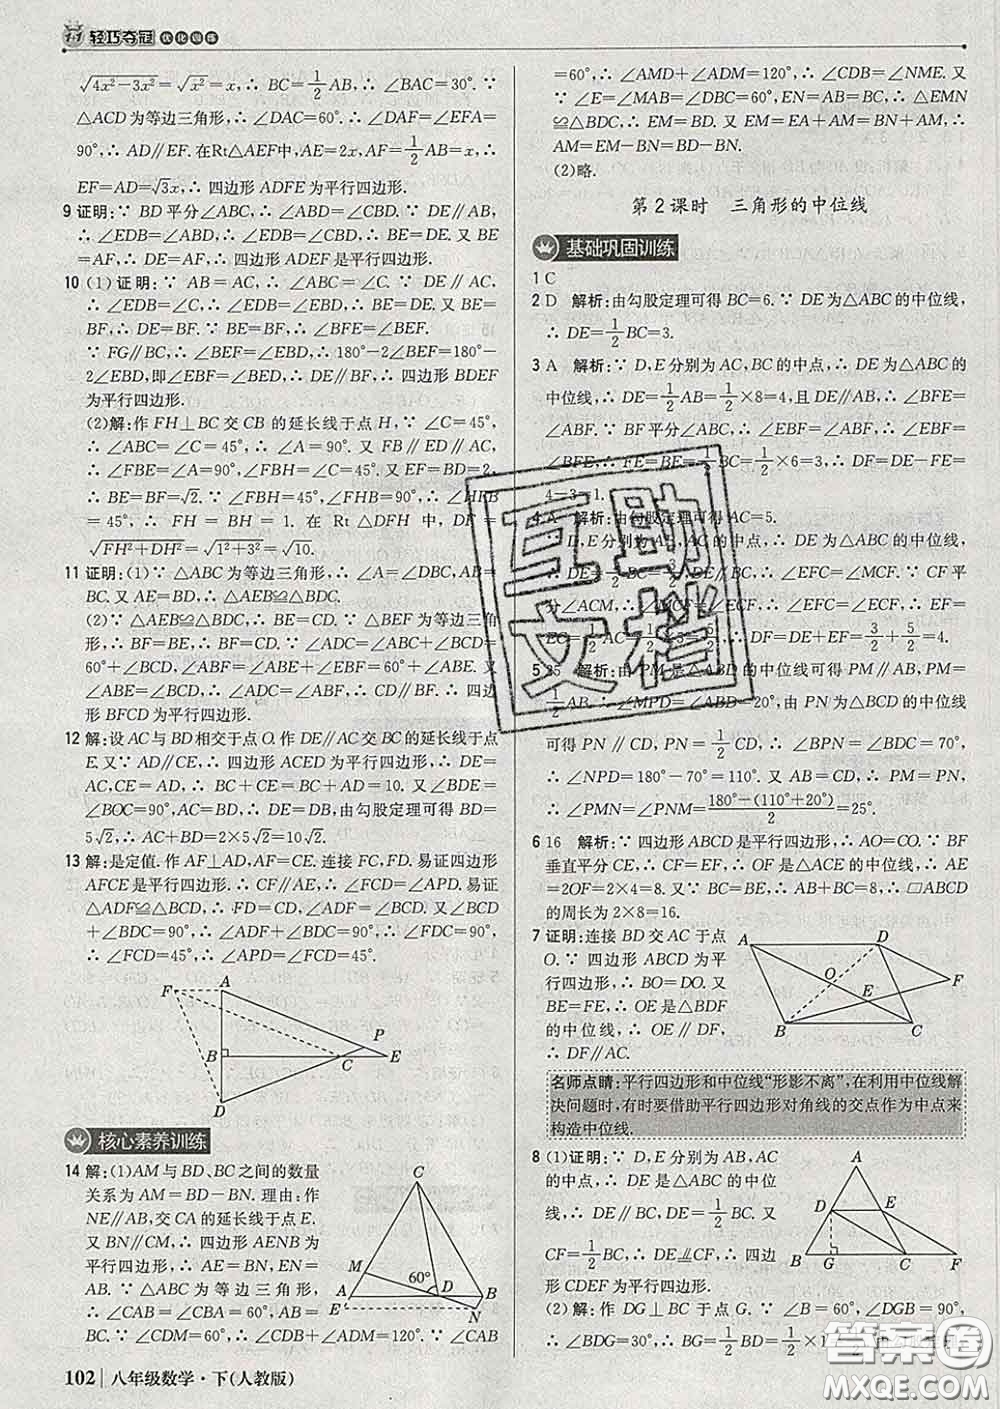 1+1 轻巧夺冠 优化训练
√(4x²−3x²)=√x²=x,∴ BC=1/2AB,∴ ∠BAC=30°.∵
△ACD为等边三角形,∴ ∠DAC=60°.∴ ∠DAF=∠EFA=
90°,∴ AD∥EF.在Rt△AEF中,AE=2x,AF=1/2AB=x,∴
EF=AD=√3x,∴ 四边形 ADFE 为平行四边形.
9 证明:∵ BD平分∠ABC,∴ ∠ABD=∠CBD.∵ DE∥AB,
∴ ∠ABD=∠BDE,∴ ∠DBE=∠BDE,∴ BE=DE.∵ BE
=AF,∴ DE=AF,∴ 四边形ADEF是平行四边形.
10 (1)证明:∵ AB=AC,∴ ∠ABC=∠C.∵ DE∥AC,
∴ ∠EDB=∠C,∴ ∠EDB=∠EBD,∴ EB=ED.又 ED=
BF,∴ DE=BF.∵ BE=BF,∴ ∠BFE=∠BEF.
∵ FG∥BC,∴ ∠BFE=∠EBD,∴ 180°−2∠BFE=180°−
2∠EBD,即∠EBF=∠BED,∴ DE∥BF,∴ 四边形 BDEF
为平行四边形.
(2)解:作 FH⊥BC 交 CB 的延长线于点 H,∵ ∠C=45°,
∴ ∠ABC=∠C=45°,∴ ∠A=90°.又 FB∥ED∥AC,
∴ ∠FBE=∠A=90°,∴ ∠FBH=45°.又 EF=BD=2,
∴ BE=BF=√2.∵ ∠FBH=45°,∠FHB=90°,∴ ∠HFB
=45°,∴ FH=BH=1.在 Rt△DFH 中,DF=
√(FH²+DH²)=√(1²+3²)=√10.
11 证明:(1)∵ △ABC为等边三角形,∴ ∠A=∠DBC,AB=
BC.又 AE=BD,∴ △AEB≌△BDC.
(2)∵ △AEB≌△BDC,∴ BE=CD.∵ △BEF为等边三角
形,∴ BF=BE,∴ BF=CD.∵ ∠ADC=∠ABC+∠BCD=
60°+∠BCD,∠ABF=∠EBF+∠ABE=60°+∠ABE.又
∠ABE=∠BCD,∴ ∠ABF=∠ADC,∴ BF∥CD,∴ 四边
形 BFCD 为平行四边形.
12 解:设AC与BD相交于点O.作DE∥AC交BC的延长线于点
E.又∵ AD∥CE,∴ 四边形 ACED 为平行四边形,∴ DE=
AC,AD=CE,∴ BE=BC+CE=BC+AD=10.又∠BDE=
∠BOC=90°,AC=BD,∴ DE=DB,由勾股定理可得 BD=
5√2,∴ AC+BD=2×5√2=10√2.
13 解:是定值.作AF⊥AD,AF=CE.连接FC,FD.易证四边形
AFCE是平行四边形.∴ CF∥AE,∴ ∠FCD=∠APD.易证
△ADF≌△BCD,∴ FD=CD,∠ADF=∠BCD.又∠BDC+
∠BCD=90°,∴ ∠ADF+∠BDC=90°,∴ ∠FDC=90°,
∴ ∠FCD=45°,∴ ∠APD=∠FCD=45°.
F A P B C E D
核心素养训练
14 解:(1)AM与BD、BC之间的数量
关系为AM=BD−BN. 理由:作
NE∥AB,交CA的延长线于点E.
又 BN∥CM,∴ 四边形 AENB 为
平行四边形,∴ AE=BN,EN=
AB.∵ △ABC 为等边三角形,
∴ ∠CAB=∠CBA=60°,∵ MN
与 BC 成∠CDM=60°,∴ ∠CDA+∠ADM=120°.∵ ∠CAB
C M 60° D A B E N
102 八年级数学·下(人教版)
=60°,∴ ∠AMD+∠ADM=120°,∴ ∠CDB=∠NME.又
∵ ∠E=∠MAB=∠DBC=60°,EN=AB=BC,∴ △EMN
≌△BDC,∴ EM=BD. 又 EM=EA+AM=BN+AM,∴
AM=BD−BN.
(2)略.
第2课时 三角形的中位线
基础巩固训练
1 C
2 D 解析:由勾股定理可得 BC=6.∵ DE为△ABC的中位线,
∴ DE=1/2BC=3.
3 A 解析:∵ D,E分别为AC,BC的中点,∴ DE为△ABC的
中位线,∴ DE=1/2AB=1/2×8=4,且 DE∥AB,∴ ∠BFE=
∠ABF.∵ BF 平分∠ABC,∴ ∠ABF=∠EBF,∴ ∠EBF=
∠BFE,∴ FE=BE=1/2BC=1/2×6=3,∴ DF=DE−FE=
4−3=1.
4 A 解析:由勾股定理可得AC=5.
D,E分别为 的中点,∴ DE 为△ABC的中位线,
∴ DE= ∠EFC=∠MCF.∵ CF平
分∠ACM,∴ ∠EFC=∠ECF,∴ EF=
EC=1/2AC= ,∴ DF=DE+EF=3/2+5/2=4.
5 25 解析:由PM是△ABD的中位线可得 PM∥AB,PM=
1/2AB,∴ ∠MPD=∠ABD=20°,由点 P,N 为 BD,CD 的中点
可得 PN∥CD,PN=1/2CD,∴ ∠BPN=∠BDC=70°,
∴ ∠NPD=180°−70°=110°. 又 AB=CD,∴ PM=PN,
∴ ∠PMN=∠PNM=(180°−(110°+20°))/2=25°.
6 16 解析:∵ 四边形 ABCD 是平行四边形,∴ AO=CO.∵ BF
垂直平分 CE,∴ CF=EF,∴ OF 是△ACE的中位线,∴ AE
=2OF=2×4=8.又∵ BC=BE,∴ AB+BC=8,∴ □ABCD
的周长为 2×8=16.
7 证明:连接 BD 交 AC 于点
O.∵ 四边形 ABCD 为平
行四边形,∴ BO=DO.又
BE=FE,∴ OE是△BDF
的中位线,∴ OE∥DF,
∴ DF∥AC.
A D O E F B C
名师点睛:平行四边形和中位线“形影不离”,在利用中位线解
决问题时,有时要借助平行四边形对角线的交点作为中点来
构造中位线.
8 (1)证明:∵ D,E是AB,AC
的中点,∴ DE是中位
线,∴ DE=1/2BC. 又
CF=1/2BC,∴ DE∥CF,∴ 四边
形 CDEF 为平行四边形.
(2)解:作 DG⊥BC 于点 G.∵ ∠B=60°,∠DGB=90°,
∴ ∠BDG=30°,∴ BG=1/2BD=1/2×1/2
A D E B G C F
互助文档
答案圈
MXQE.COM